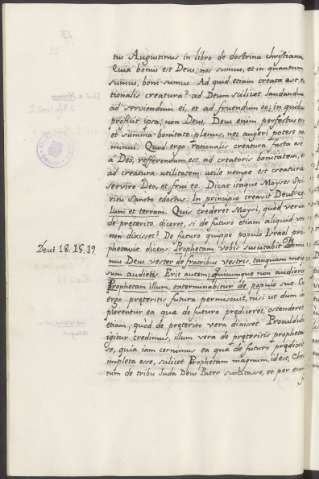 tus Augustinus in libro de doctrina christiana
Quia bonus est Deus, nos sumus, et in quantum
sumus, boni sumus. Ad quid etiam creata est ra
tionalis creatura? ad Deum scilicet laudandum
ad serviendum ei, et ad fruendum eo; in quibus
proficit ipsa, non Deus. Deus enim perfectus est
et summa bonitate plenus, nec augeri potest nec
minui. Quod ergo rationalis creatura facta est
a Deo, refferendum est ad creatoris bonitatem, et
ad creaturae utilitatem utile nempe est creaturae
servire Deo, et frui eo. Dicat itaque Moyses Spi
ritu Sancto edoctus: In principio creavit Deus coe
lum et terram. Quis crederet Moysi, quod vera
de praeterito diceret, si de futuro etiam aliquid ve
rum non dixisset? De futuro quippe populo Israel pro
Deut 18. 15. 19 phetavit dicens Prophetam vobis suscitabit Domi
nus Deus vester de fratribus vestris, tanquam me ip
sum audietis. Erit autem, quicumque non audierit
Prophetam illum, exterminabitur de populo suo. In
ergo praeteritis futura permiscuit, nisi ut dum im
pleretur ea quae de futuro praedixerat, ostenderet
etiam, quod de praeterito vera dixisset. Proculdubio
igitur credimus, illum vera de praeteritis propheta
sse, quia iam cernimus ea quae de futuro praedixerat
impleta esse, scilicet Prophetam magnum, id est, Chris
tum de tribu Juda Deus Pater suscitasse, et per eum